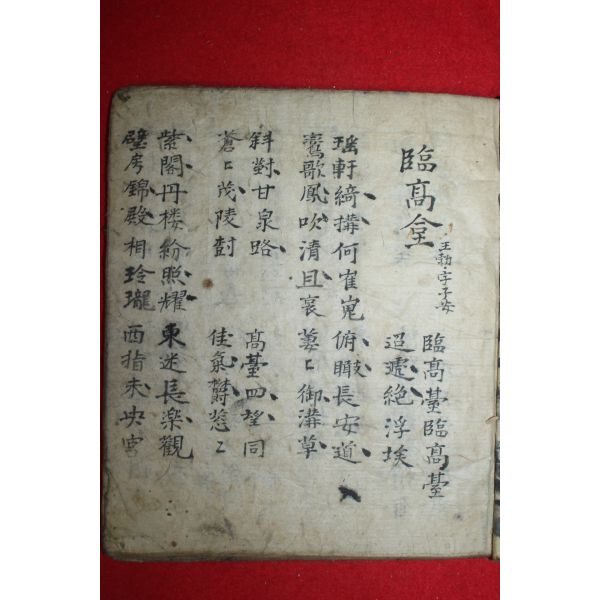 臨高䑓
王勃字子安
臨高臺臨高臺
迢遞絶浮埃
瑤軒綺搆何崔嵬
鸞歌鳳吹清且哀
俯瞰長安道
萋〻御溝草
斜對甘泉路
蒼〻茂陵樹
高臺四望同
佳氣欝葱〻
紫閣丹楼紛照耀
璧房錦殿相玲瓏
東迷長樂觀
西指未央宮